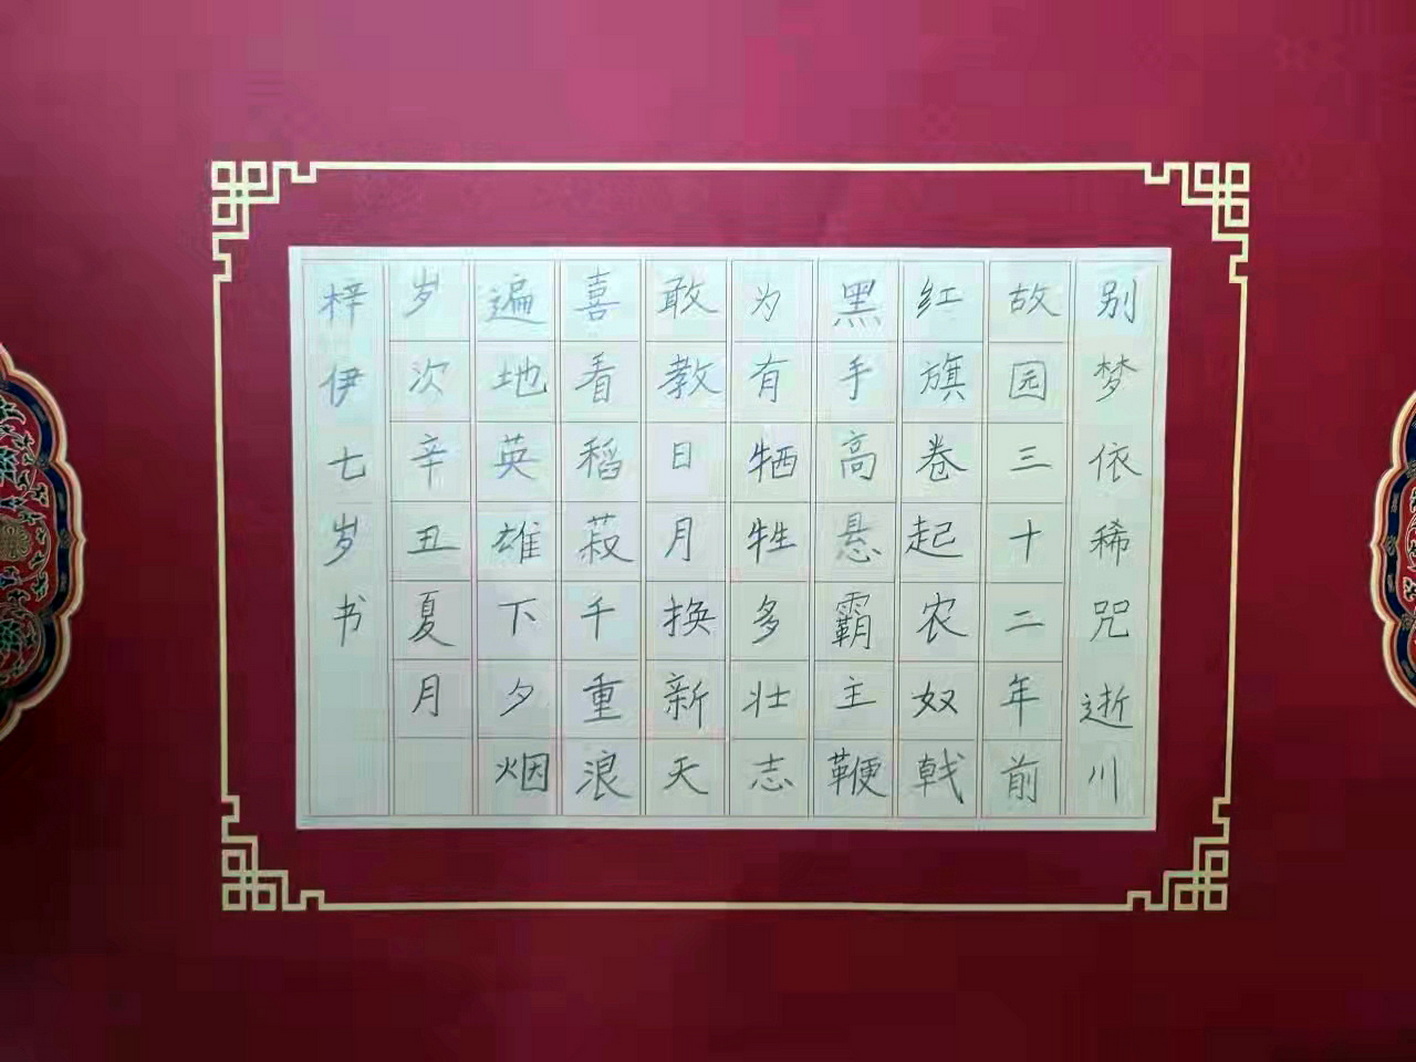 别梦依稀咒逝川
故园三十二年前
红旗卷起农奴戟
黑手高悬霸主鞭
为有牺牲多壮志
敢教日月换新天
喜看稻菽千重浪
遍地英雄下夕烟
岁次辛丑夏月
梓伊七岁书